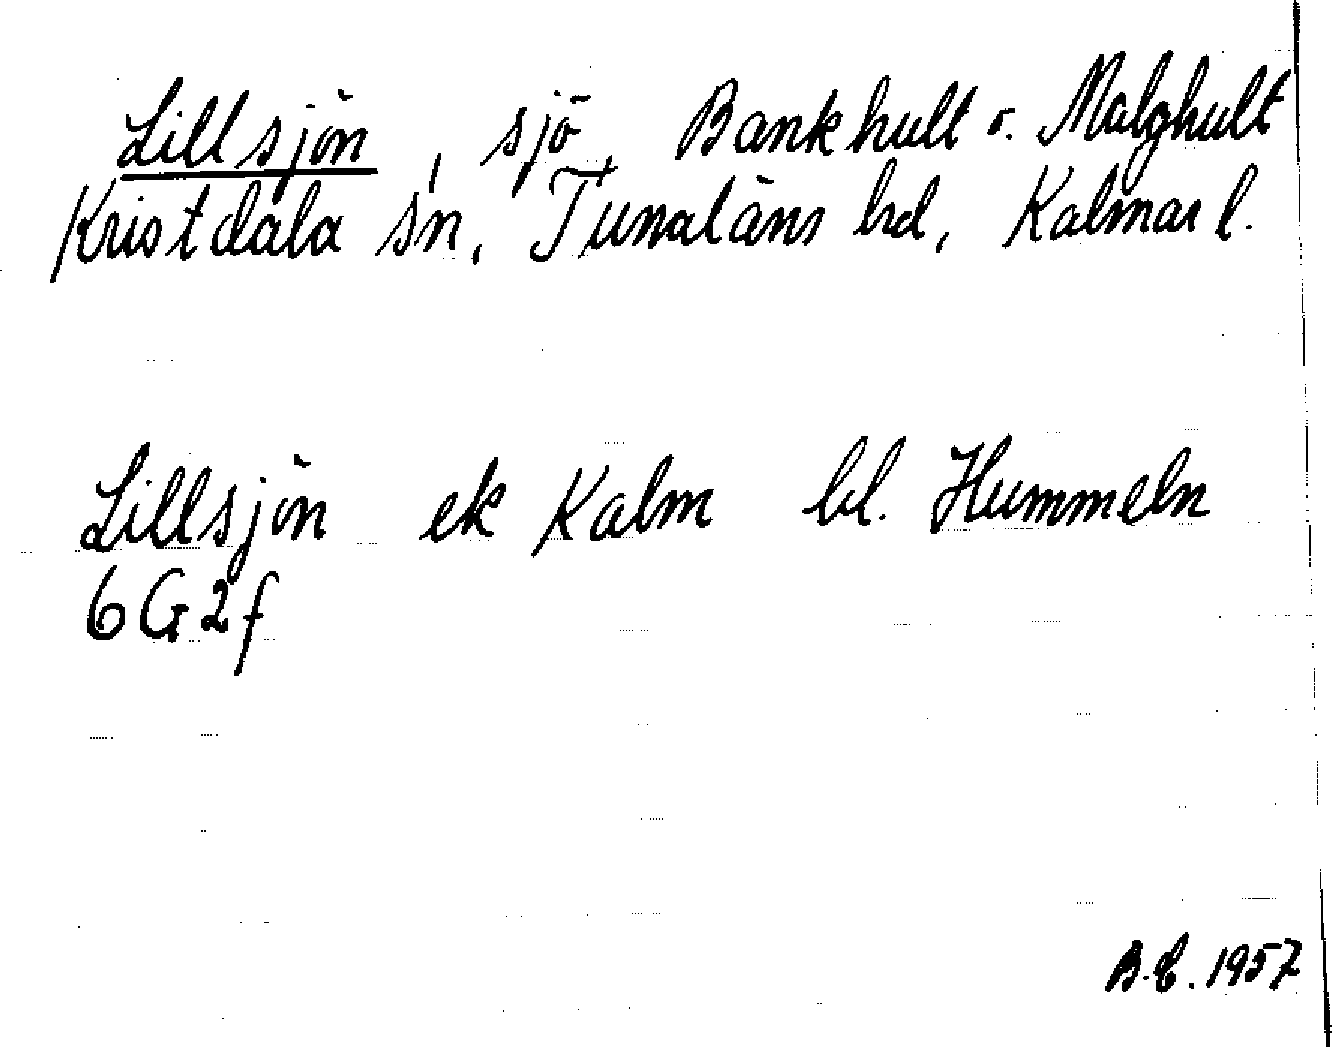 Lillsjön, sjö, Bankhult o. Malghult
Kristdala sn, Tunaläns hd, Kalmar l.
Lillsjön ek Kalm bl. Hummeln
6G2f
B.E. 1957